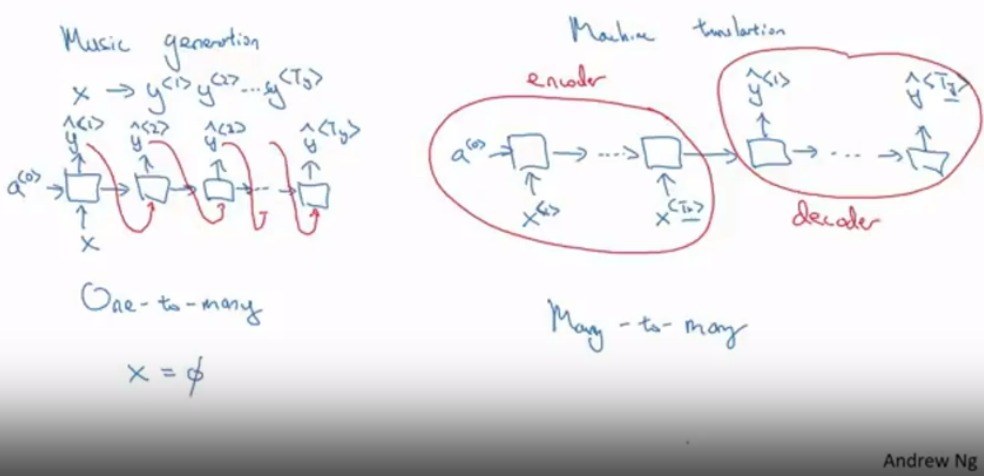 Music generation
x → y<1> y<2> ... y<Ty>
ŷ<1> ŷ<2> ŷ<2> ŷ<Ty>
a<0> → → → ... →
x
One-to-many
x = ϕ
Machine translation
encoder
ŷ<1> ŷ<Ty>
a<0> → → ... → → → ... →
x<1> x<Tx>
decoder
Many-to-many
Andrew Ng